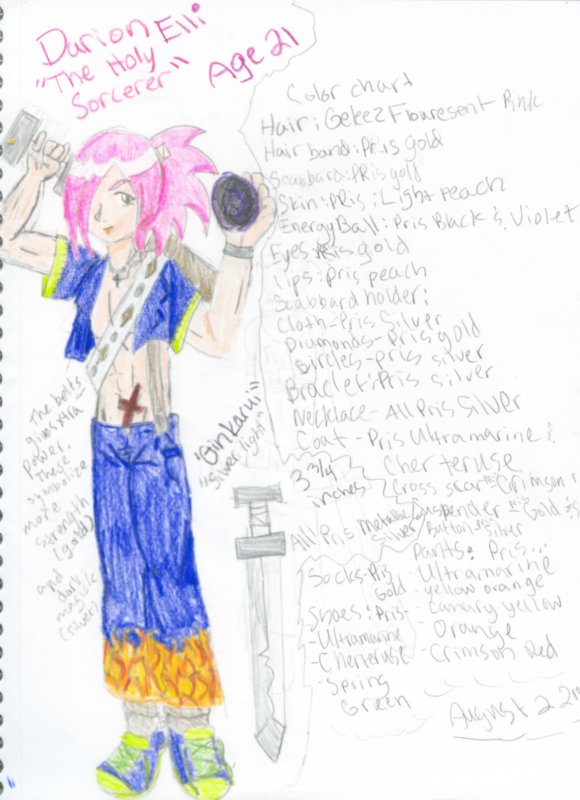 Darion Elli
"The Holy
Sorcerer"
Age 21
Color chart
Hair: Gekez Flouresent Pink
Hair band: Pris gold
Scabbard: Pris gold
Skin: Pris: Light Peach
Energy Ball: Pris Black & Violet
Eyes Pris gold
Lips: Pris peach
Scabbard holder:
Cloth-Pris Silver
Diamonds-Pris gold
Circles-Pris silver
Braclet: Pris silver
Necklace-All Pris Silver
Coat-Pris Ultramarine &
Cherteruse
Cross scar Crimson
Suspender Gold
Button silver
Pants: Pris
- Ultramarine
- yellow orange
- canary yellow
- Orange
- Crimson Red
3 3/4
inches
All Pris metallic
Silver
Socks-Pris
Gold
Shoes: Pris-
-Ultramarine
-Cherteruse
-Spring
Green
"Ginkarui"
"Silver light"
The bolts
gives xtra
power.
These
symbolize
more
strength
(gold)
and
dark
magick
(silver)
August 2